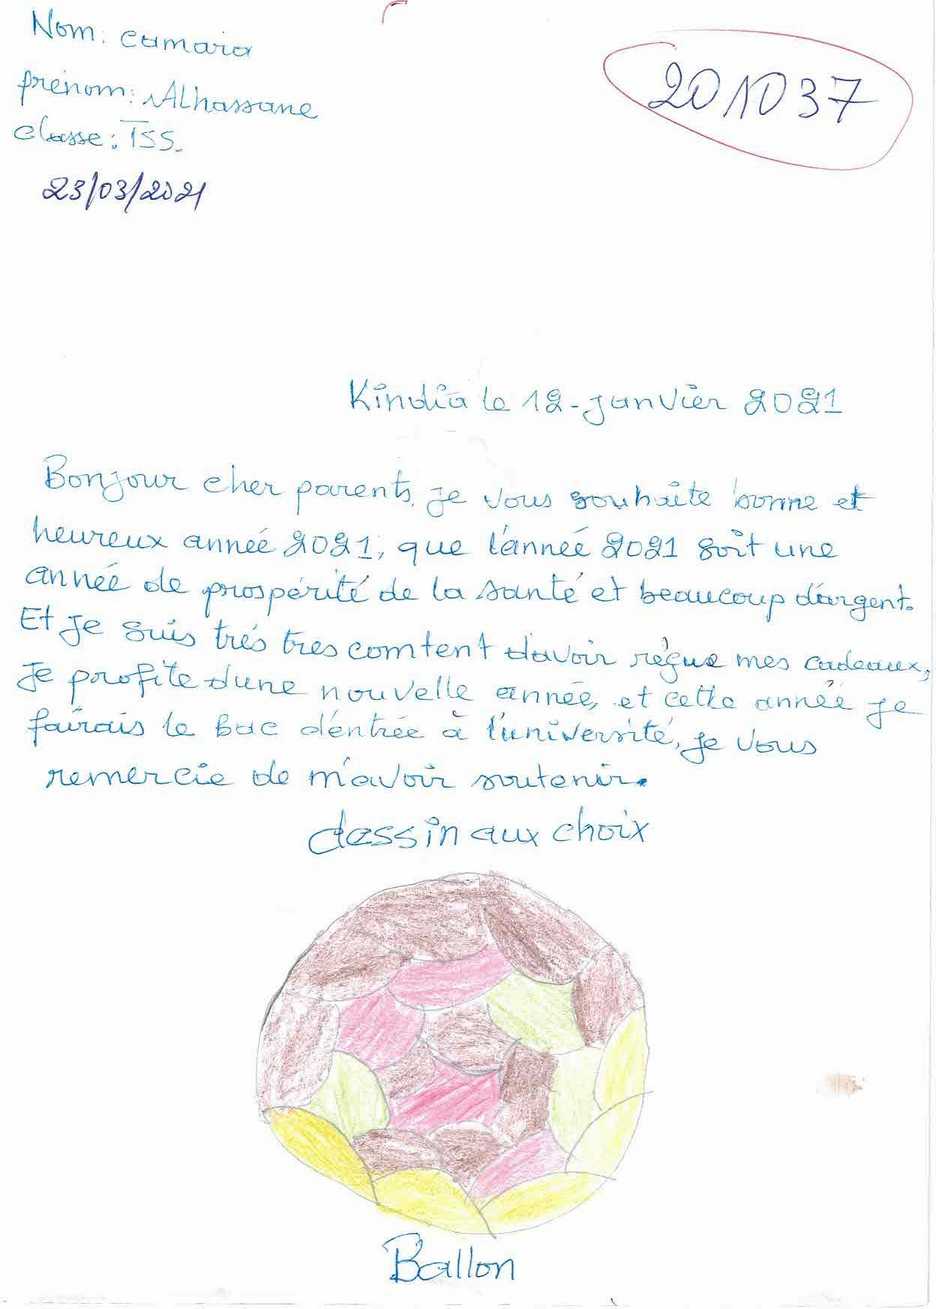 Nom: camara
201037
prénom: Alhassane
classe: TSS.
23/03/2021
Kindia le 12-janvier 2021
Bonjour cher parents, je vous souhaite bonne et
heureux année 2021, que l'année 2021 soit une
année de prospérité de la santé et beaucoup d'argent.
Et je suis trés tres comtent d'avoir règue mes cadeaux,
Je profite d'une nouvelle année, et cette année je
fairais le bac d'entrée à l'université, je vous
remercie de m'avoir soutenir.
dessin aux choix
Ballon